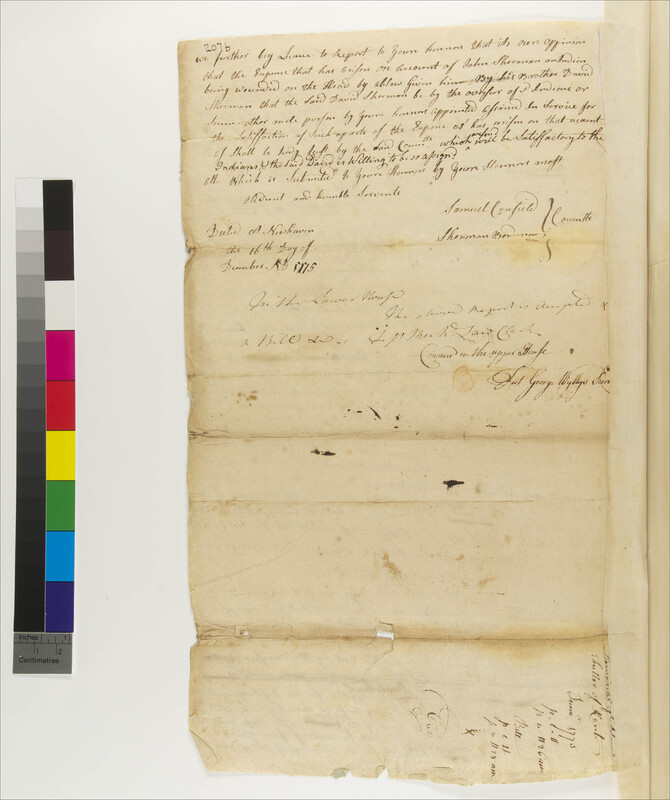 207b
we further beg Leave to Report to Youre honnors that its oure oppinion
that the Expence that has arisen on account of John Sherman an Indian
being wounded on the Head by ablow Given him By his Brother David
Sherman that the Said David Sherman be by the overseer of Indians or
Sume other mete parson by Youre honnors appointed assined In Service for
the Sattisfaction of Such a parte of the Expence as has arisen on that acount
as Shall be Judg Just by the Said Comtte which parson will be Sattisfactory to the
Indians & the said David is Willing to be so assignd
all Which is Submited to Youre Honnors by Youre Honnors most
obedient and humble Servents
Samuel Canfield
Sherman Bordman
Comitte
Dated at Newhaven
the 16th Day of
December AD 1775
In the Lower House
The above Report is Accepted
& Bill &c.
Test Clerk
Concurrd in the upper House
Test George Wyllys Secry
Fuller of Kent
June 1775
Bill
Inches 1
1 2
Centimetres